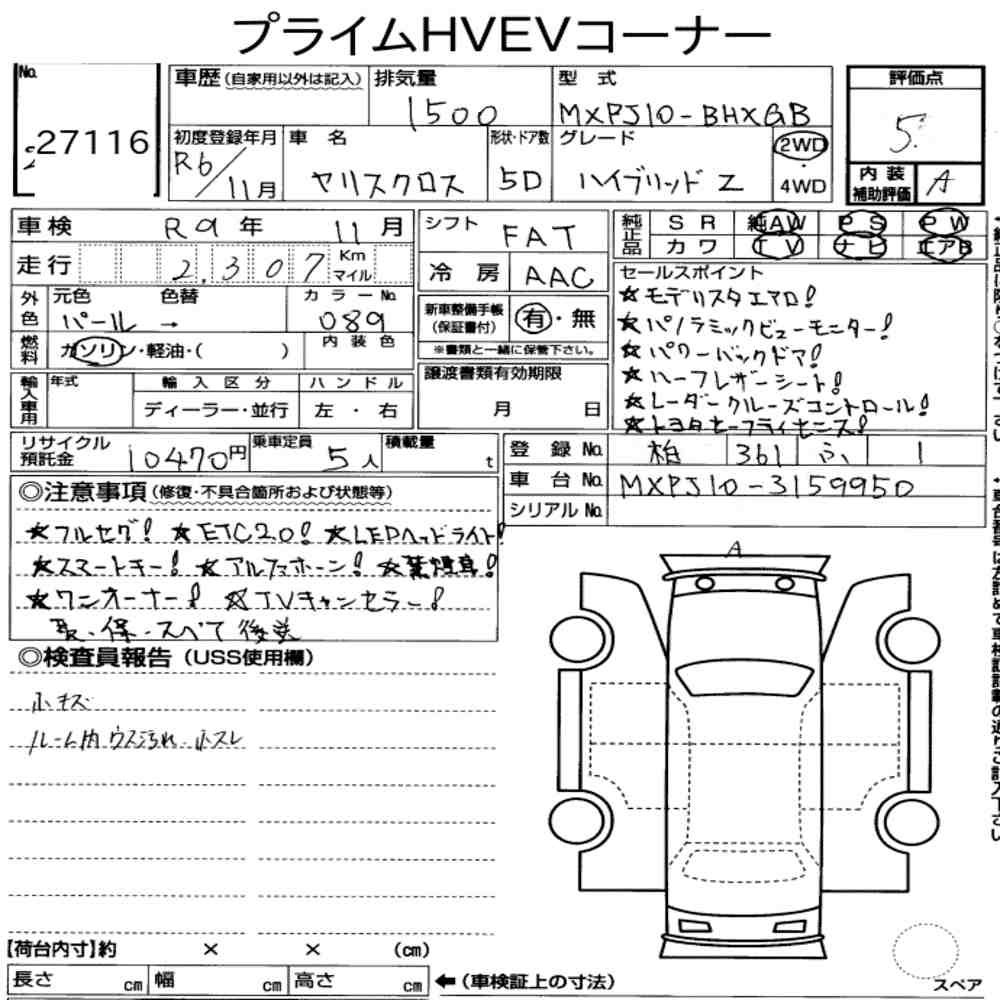 プライムHVEVコーナー
No. 27116
車歴 (自家用以外は記入) 排気量 1500 型式 MXPJ10-BHXGB
初度登録年月 R6/11月 車名 ヤリスクロス 形状・ドア数 5D グレード ハイブリッド Z 2WD・4WD
評価点 5
内装補助評価 A
車検 R9年 11月
走行 2.307 Km マイル
外色 元色 パール 色替 → カラーNo. 089
燃料 ガソリン・軽油・( ) 内装色
輸入車用 年式 輸入区分 ディーラー・並行 ハンドル 左・右
シフト FAT
冷房 AAC
新車整備手帳(保証書付) 有・無
※書類と一緒に保管下さい。
譲渡書類有効期限
月 日
純正品 SR 純AW PS PW
カワ TV ナビ エアB
セールスポイント
☆モデリスタエアロ!
☆パノラミックビューモニター!
☆パワーバックドア!
☆ハーフレザーシート!
☆レーダークルーズコントロール!
☆トヨタセーフティセンス!
リサイクル預託金 10470円 乗車定員 5人 積載量 t
登録No. 柏 361 ふ 1
車台No. MXPJ10-3159950
シリアルNo.
◎注意事項 (修復・不具合箇所および状態等)
☆フルセグ! ☆ETC2.0! ☆LEDヘッドライト!
☆スマートキー! ☆アルファホーン! ☆禁煙車!
☆ワンオーナー! ☆TVキャンセラー!
取・保・スペア後送
◎検査員報告 (USS使用欄)
小キズ
ルーム内ウス汚れ 小スレ
A
【荷台内寸】約 × × (cm)
長さ cm 幅 cm 高さ cm ←(車検証上の寸法)
スペア